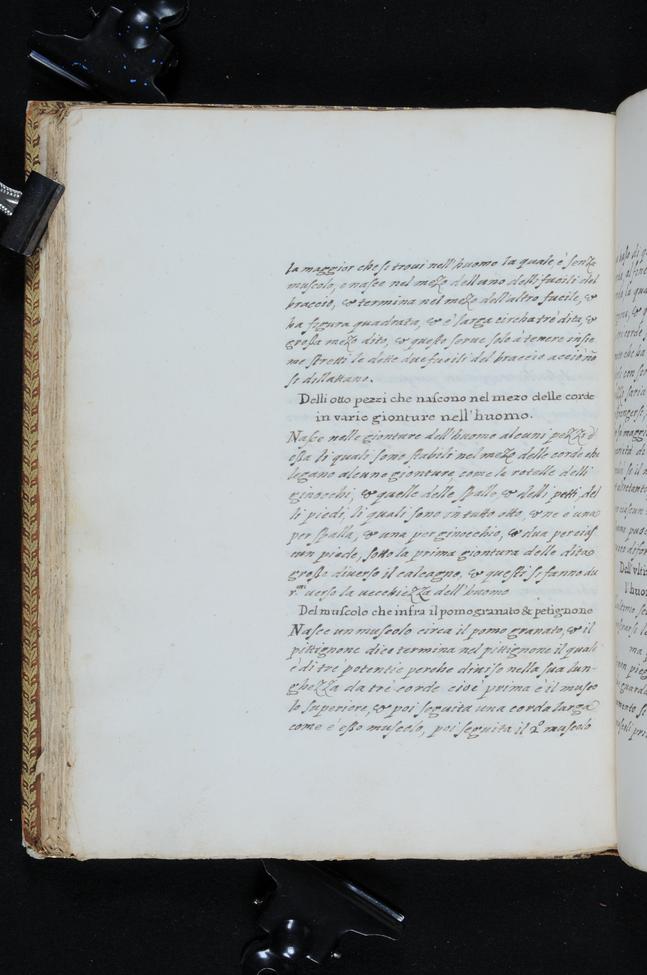 la maggior che si trovi nell'huomo la quale, è senza
muscolo, e nasce nel mezo dell'uno delli fucili del
braccio, & termina nel mezo dell'altro fucile, &
ha figura quadrata, & è larga circha tre dita, &
grossa mezo dito, & questo serve solo à tenere insie
me stretti le dette due fucili del braccio acciò nō
si dislattano.
Delli otto pezzi che nascono nel mezo delle corde
in vario gionture nell'huomo.
Nasce nelle gionture dell'huomo alcuni pezzi d'
ossa li quali sono stabili nel mezo delle corde che
legano alcune gionture, come le rotelle delli
ginocchi, & quelle delle spalle, & delli petti del
li piedi, li quali sono in tutto otto, & ne è una
per spalla, & una per ginocchio, & dua per cias
cun piede, sotto la prima giontura delle dita
grosse diverso il calcagno, & questi si fanno du
r.mi verso la vecchiezza dell'huomo
Del muscolo che infra il pomogranato & petignone
Nasce un muscolo circa il pomo granato, & il
pittignone dico termina nel pittignone il quali
è di tre potentie perche diviso nella sua lun-
ghezza da tré corde cioè prima è il musco
lo superiore, & poi seguita una corda larga
come è esso muscolo, poi seguita il 2º muscolo